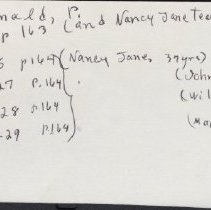 nald, P.
p 163 (and Nancy Jane Tea
5 p164 (Nancy Jane, 37yrs)
27 p.164 (John
28 p.164 (Wil
29 p164 (Ma